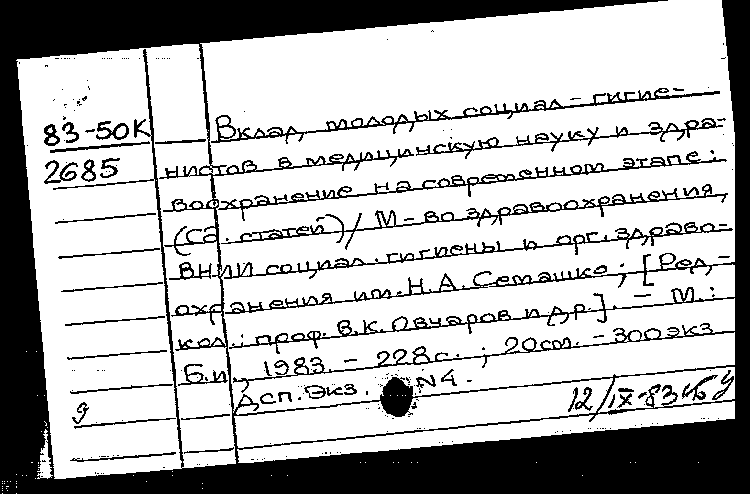 83-50К Вклад молодых социал-гигие-
2685 нистов в медицинскую науку и здра-
воохранение на современном этапе:
(Сб. статей)/ М-во здравоохранения,
ВНИИ социал. гигиены и орг. здраво-
охранения им. Н.А. Семашко; [Ред.-
кол.: проф. В.К. Овчаров и др.]. - М.:
Б.и., 1983. - 228с.; 20см. - 300экз
Дсп. Экз. N4.
12/IX-83